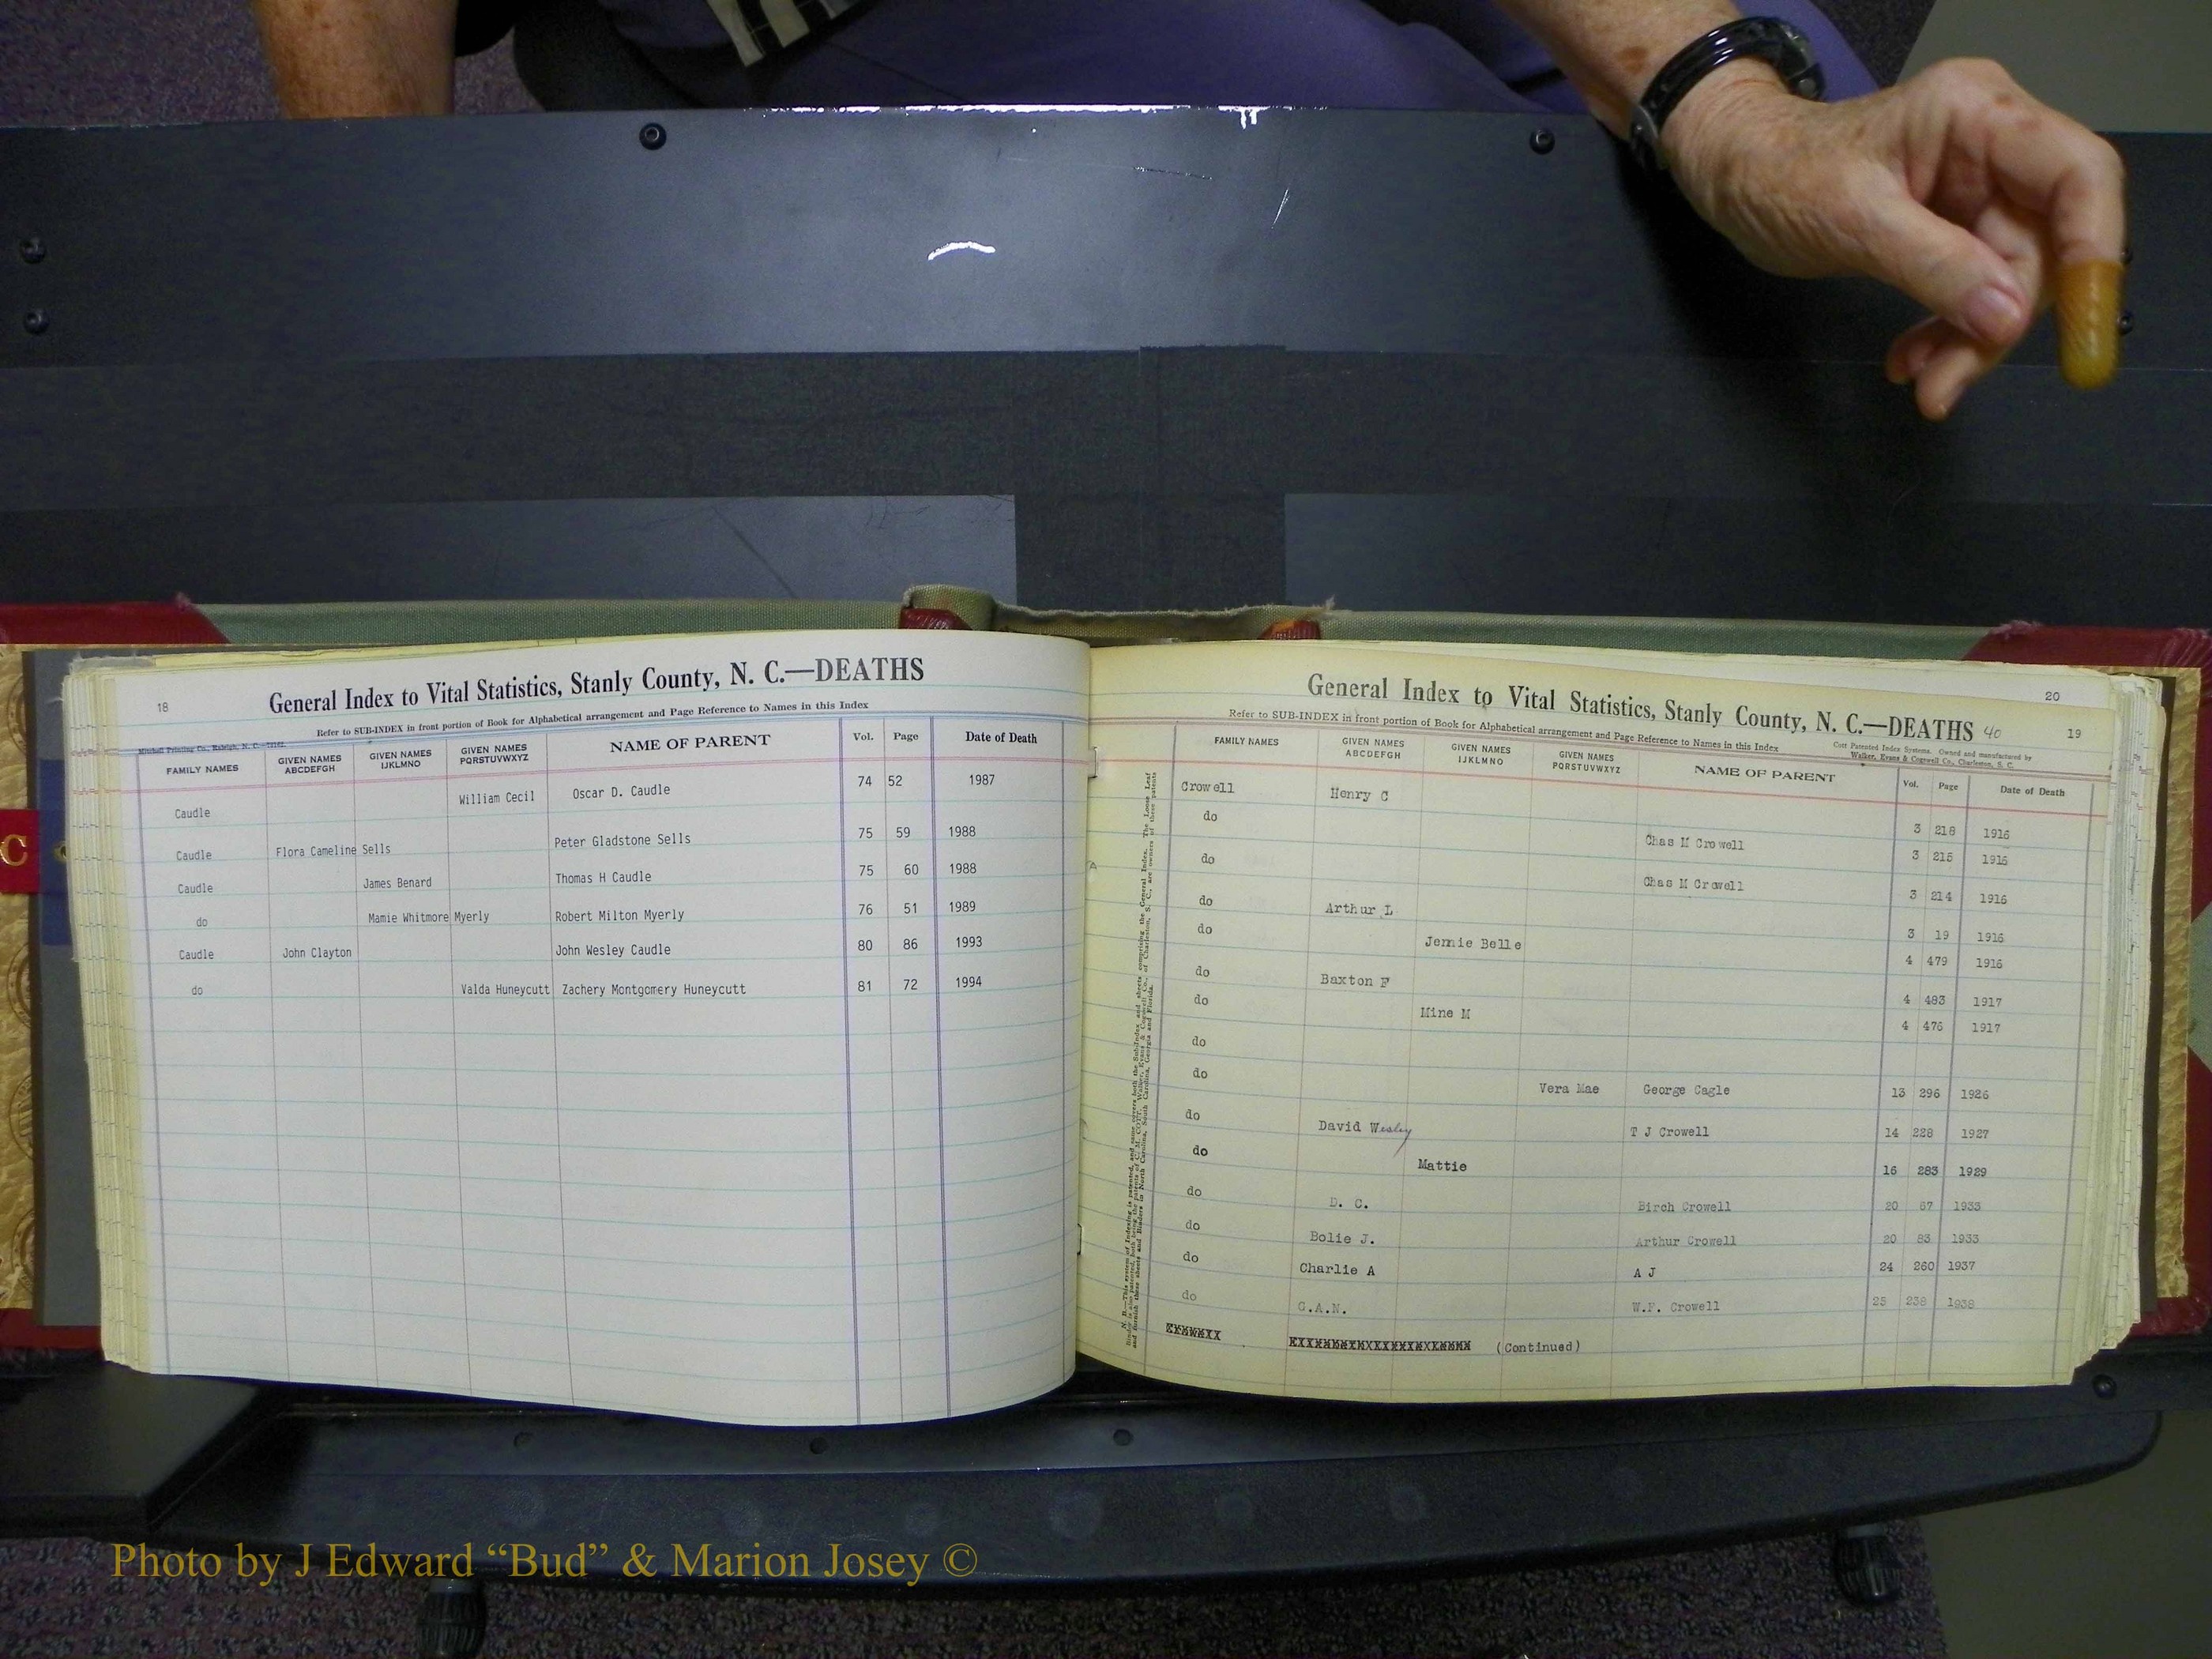 18
General Index to Vital Statistics, Stanly County, N. C.—DEATHS
Refer to SUB-INDEX in front portion of Book for Alphabetical arrangement and Page Reference to Names in this Index
Mitchell Printing Co., Raleigh, N. C.
FAMILY NAMES GIVEN NAMES ABCDEFGH GIVEN NAMES IJKLMNO GIVEN NAMES PQRSTUVWXYZ NAME OF PARENT Vol. Page Date of Death
Caudle William Cecil Oscar D. Caudle 74 52 1987
Caudle Flora Cameline Sells Peter Gladstone Sells 75 59 1988
Caudle James Benard Thomas H Caudle 75 60 1988
do Mamie Whitmore Myerly Robert Milton Myerly 76 51 1989
Caudle John Clayton John Wesley Caudle 80 86 1993
do Valda Huneycutt Zachery Montgomery Huneycutt 81 72 1994
C
20
General Index to Vital Statistics, Stanly County, N. C.—DEATHS 40
19
Refer to SUB-INDEX in front portion of Book for Alphabetical arrangement and Page Reference to Names in this Index
Cott Patented Index Systems. Owned and manufactured by
Walker, Evans & Cogswell Co., Charleston, S. C.
FAMILY NAMES GIVEN NAMES ABCDEFGH GIVEN NAMES IJKLMNO GIVEN NAMES PQRSTUVWXYZ NAME OF PARENT Vol. Page Date of Death
Crowell Henry C 3 218 1916
do Chas M Crowell 3 215 1916
do Chas M Crowell 3 214 1916
do Arthur L 3 19 1916
do Jennie Belle 4 479 1916
do Baxton F 4 483 1917
do Mine M 4 476 1917
do
do Vera Mae George Cagle 13 296 1926
do David Wesley T J Crowell 14 228 1927
do Mattie 16 283 1929
do D. C. Birch Crowell 20 67 1933
do Bolie J. Arthur Crowell 20 83 1933
do Charlie A A J 24 260 1937
do G.A.N. W.F. Crowell 25 238 1938
(Continued)
Photo by J Edward “Bud” & Marion Josey ©